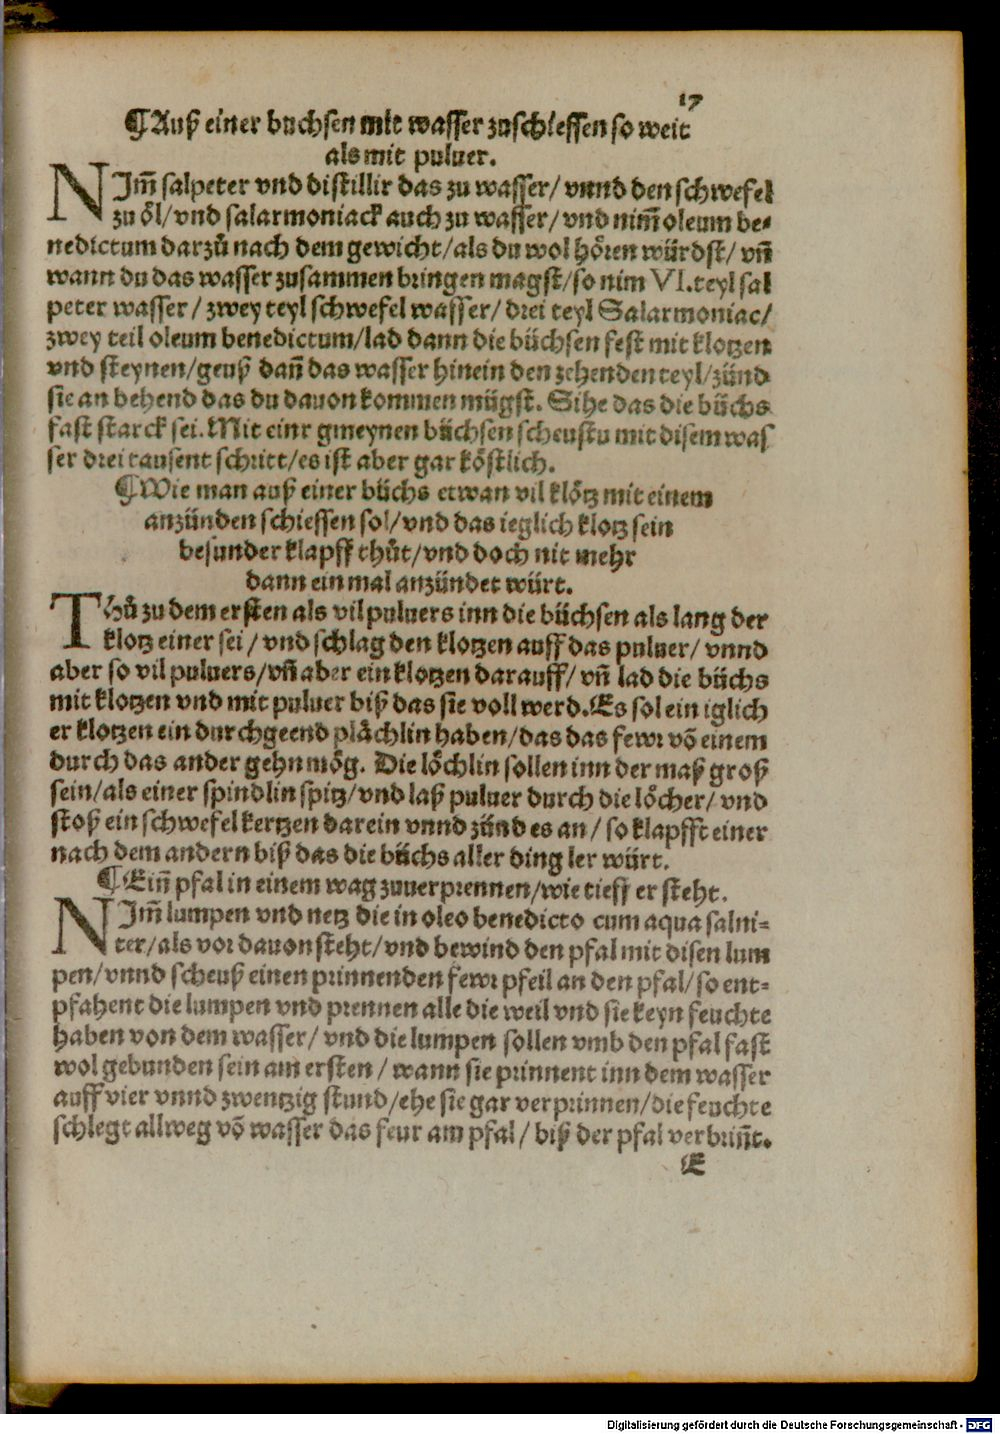 17
¶Auß einer buchsen mit wasser zuschiessen so weit
als mit puluer.
NIm̃ salpeter vnd distillir das zu wasser/ vnnd den schwefel
zu öl/ vnd salarmoniack auch zu wasser/ vnd nim̃ oleum be-
nedictum darzů nach dem gewicht/ als du wol hören würdst/ vñ
wann du das wasser zusammen bringen magst/ so nim VI. teyl sal
peter wasser/ zwey teyl schwefel wasser/ drei teyl Salarmoniac/
zwey teil oleum benedictum/ lad dann die büchsen fest mit klotzen
vnd steynen/ geuß dañ das wasser hinein den zehenden teyl/ zünd
sie an behend das du dauon kommen mügst. Sihe das die büchs
fast starck sei. Mit einr gmeynen büchsen scheustu mit disem was
ser drei tausent schritt/ es ist aber gar köstlich.
¶Wie man auß einer büchs etwan vil klötz mit einem
anzünden schiessen sol/ vnd das ieglich klotz sein
besunder klapff thůt/ vnd doch nit mehr
dann ein mal anzündet würt.
THů zu dem ersten als vil puluers inn die büchsen als lang der
klotz einer sei/ vnd schlag den klotzen auff das puluer/ vnnd
aber so vil puluers/ vñ aber ein klotzen darauff/ vñ lad die büchs
mit klotzen vnd mit puluer biß das sie voll werd. Es sol ein iglich
er klotzen ein durchgeend plächlin haben/ das das fewr võ einem
durch das ander gehn mög. Die löchlin sollen inn der maß groß
sein/ als einer spindlin spitz/ vnd laß puluer durch die löcher/ vnd
stoß ein schwefel kertzen darein vnnd zünd es an/ so klapfft einer
nach dem andern biß das die büchs aller ding ler würt.
¶Eiñ pfal in einem wag zuuerprennen/ wie tieff er steht.
NIm̃ lumpen vnd netz die in oleo benedicto cum aqua salni-
ter/ als vor dauon steht/ vnd bewind den pfal mit disen lum
pen/ vnnd scheuß einen prinnenden fewr pfeil an den pfal/ so ent-
pfahent die lumpen vnd prennen alle die weil vnd sie keyn feuchte
haben von dem wasser/ vnd die lumpen sollen vmb den pfal fast
wol gebunden sein am ersten/ wann sie prinnent inn dem wasser
auff vier vnnd zwentzig stund/ ehe sie gar verprinnen/ die feuchte
schlegt allweg võ wasser das feur am pfal/ biß der pfal verbriñt.
E
Digitalisierung gefördert durch die Deutsche Forschungsgemeinschaft - DFG